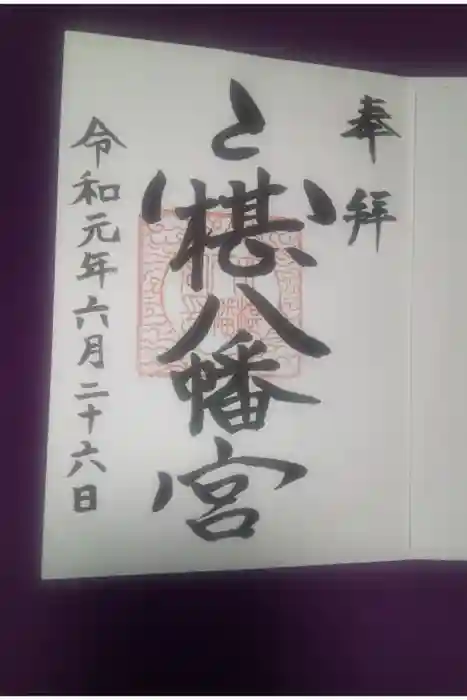 奉拝
八幡宮
令和元年六月二十六日